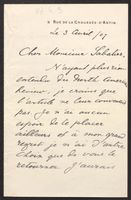 2 RUE DE LA CHAUSSÉE D'ANTIN
Le 3 Avril /07
Cher Monsieur Sabatier
N'ayant plus rien
entendu du North American
Review, je crains que
l'article ne leur convienne
pas. Je n'ai aucun
espoir de le placer
ailleurs et à mon grand
regret je n'ai d'autre
choix que de vous le
retourner. J'aurais